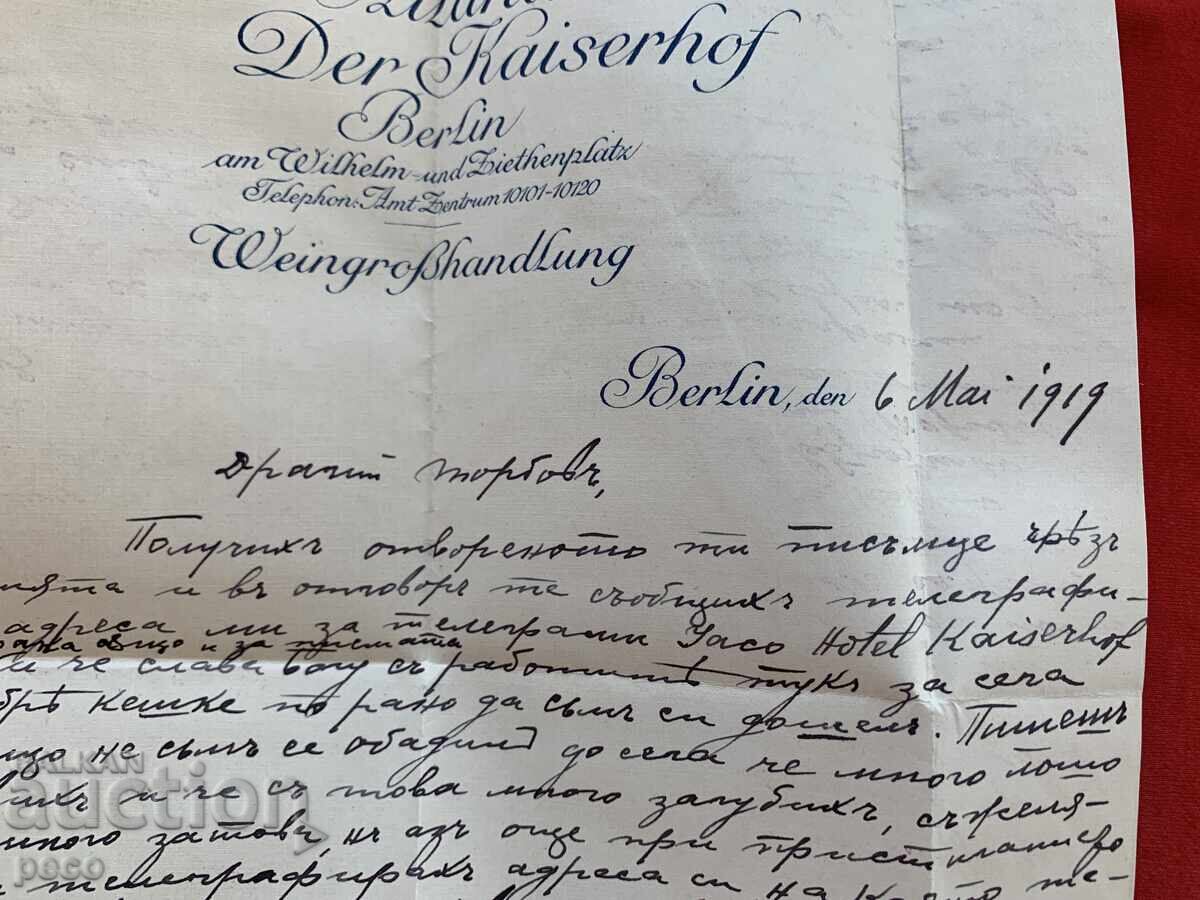 Der Kaiserhof
Berlin
am Wilhelm- und Ziethenplatz
Telephon: Amt Zentrum 10101-10120
Weingroßhandlung
Berlin, den 6 Mai 1919
Драгий Торбовъ,
Получихъ отвореното ти писъмце чрѣзъ
и въ отговоръ те съобщихъ телеграфи-
адреса ми за телеграми Yaco Hotel Kaiserhof
също и за писмата
си че слава Богу съ работитѣ тукъ за сега
добрѣ кешке по рано да съмъ си дошелъ. Пишешъ
защо не съмъ се обадилъ до сега че много лошо
и че съ това много загубихъ, съжеля-
много затова, нъ азъ още при пристиганието
телеграфирахъ адреса си на Които те-
BALKAN
auction
peco